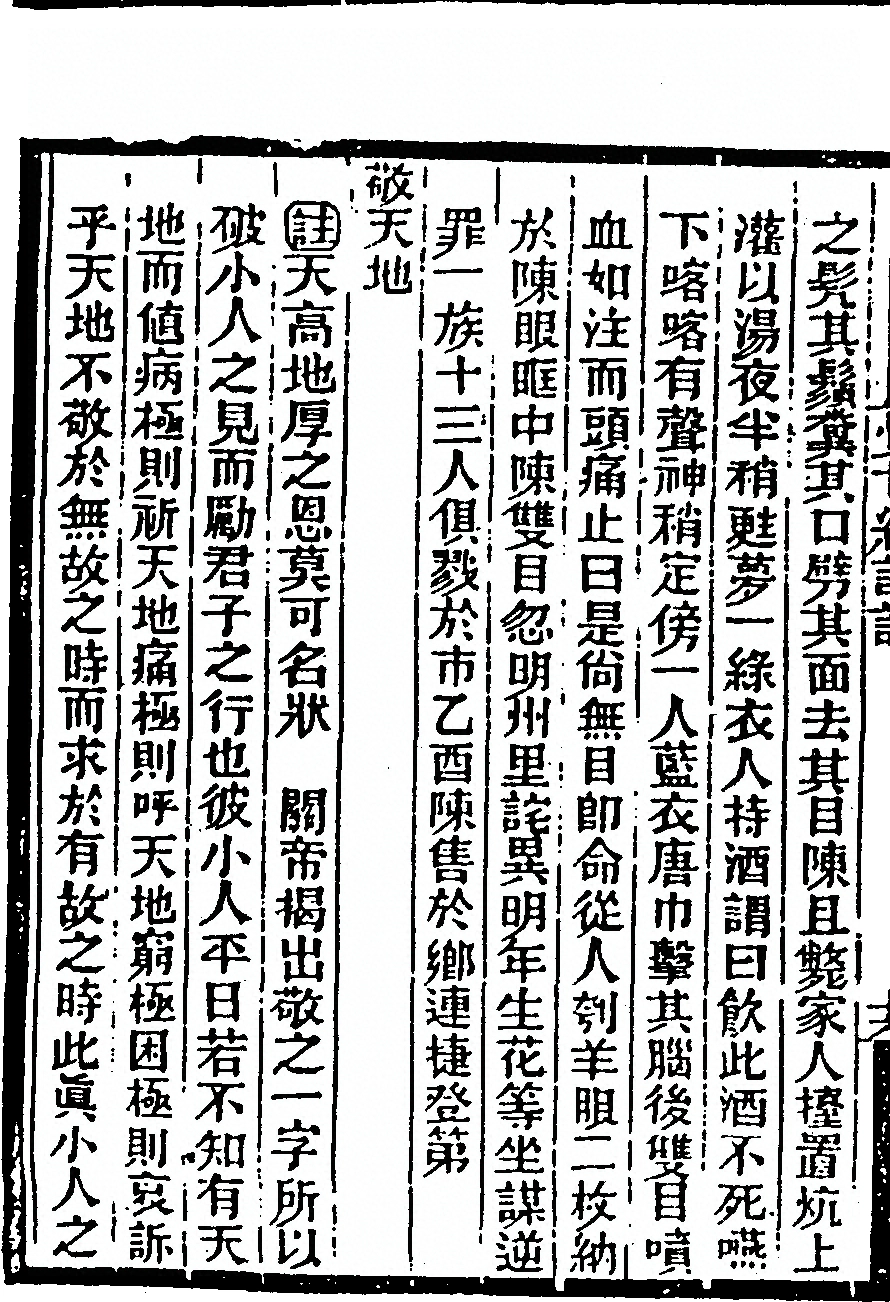 之髡其鬚糞其口劈其面去其目陳且斃家人擡置炕上
灌以湯夜半稍甦夢一綠衣人持酒謂曰飲此酒不死嚥
下喀喀有聲神稍定傍一人藍衣唐巾擊其腦後雙目噴
血如注而頭痛止曰是尙無目卽命從人刳羊眼二枚納
於陳眼眶中陳雙目忽明州里詫異明年生花等坐謀逆
罪一族十三人俱戮於市乙酉陳售於鄉連捷登第
敬天地
註天高地厚之恩莫可名狀　關帝揭出敬之一字所以
破小人之見而勵君子之行也彼小人平日若不知有天
地而値病極則祈天地痛極則呼天地窮極困極則哀訴
乎天地不敬於無故之時而求於有故之時此眞小人之